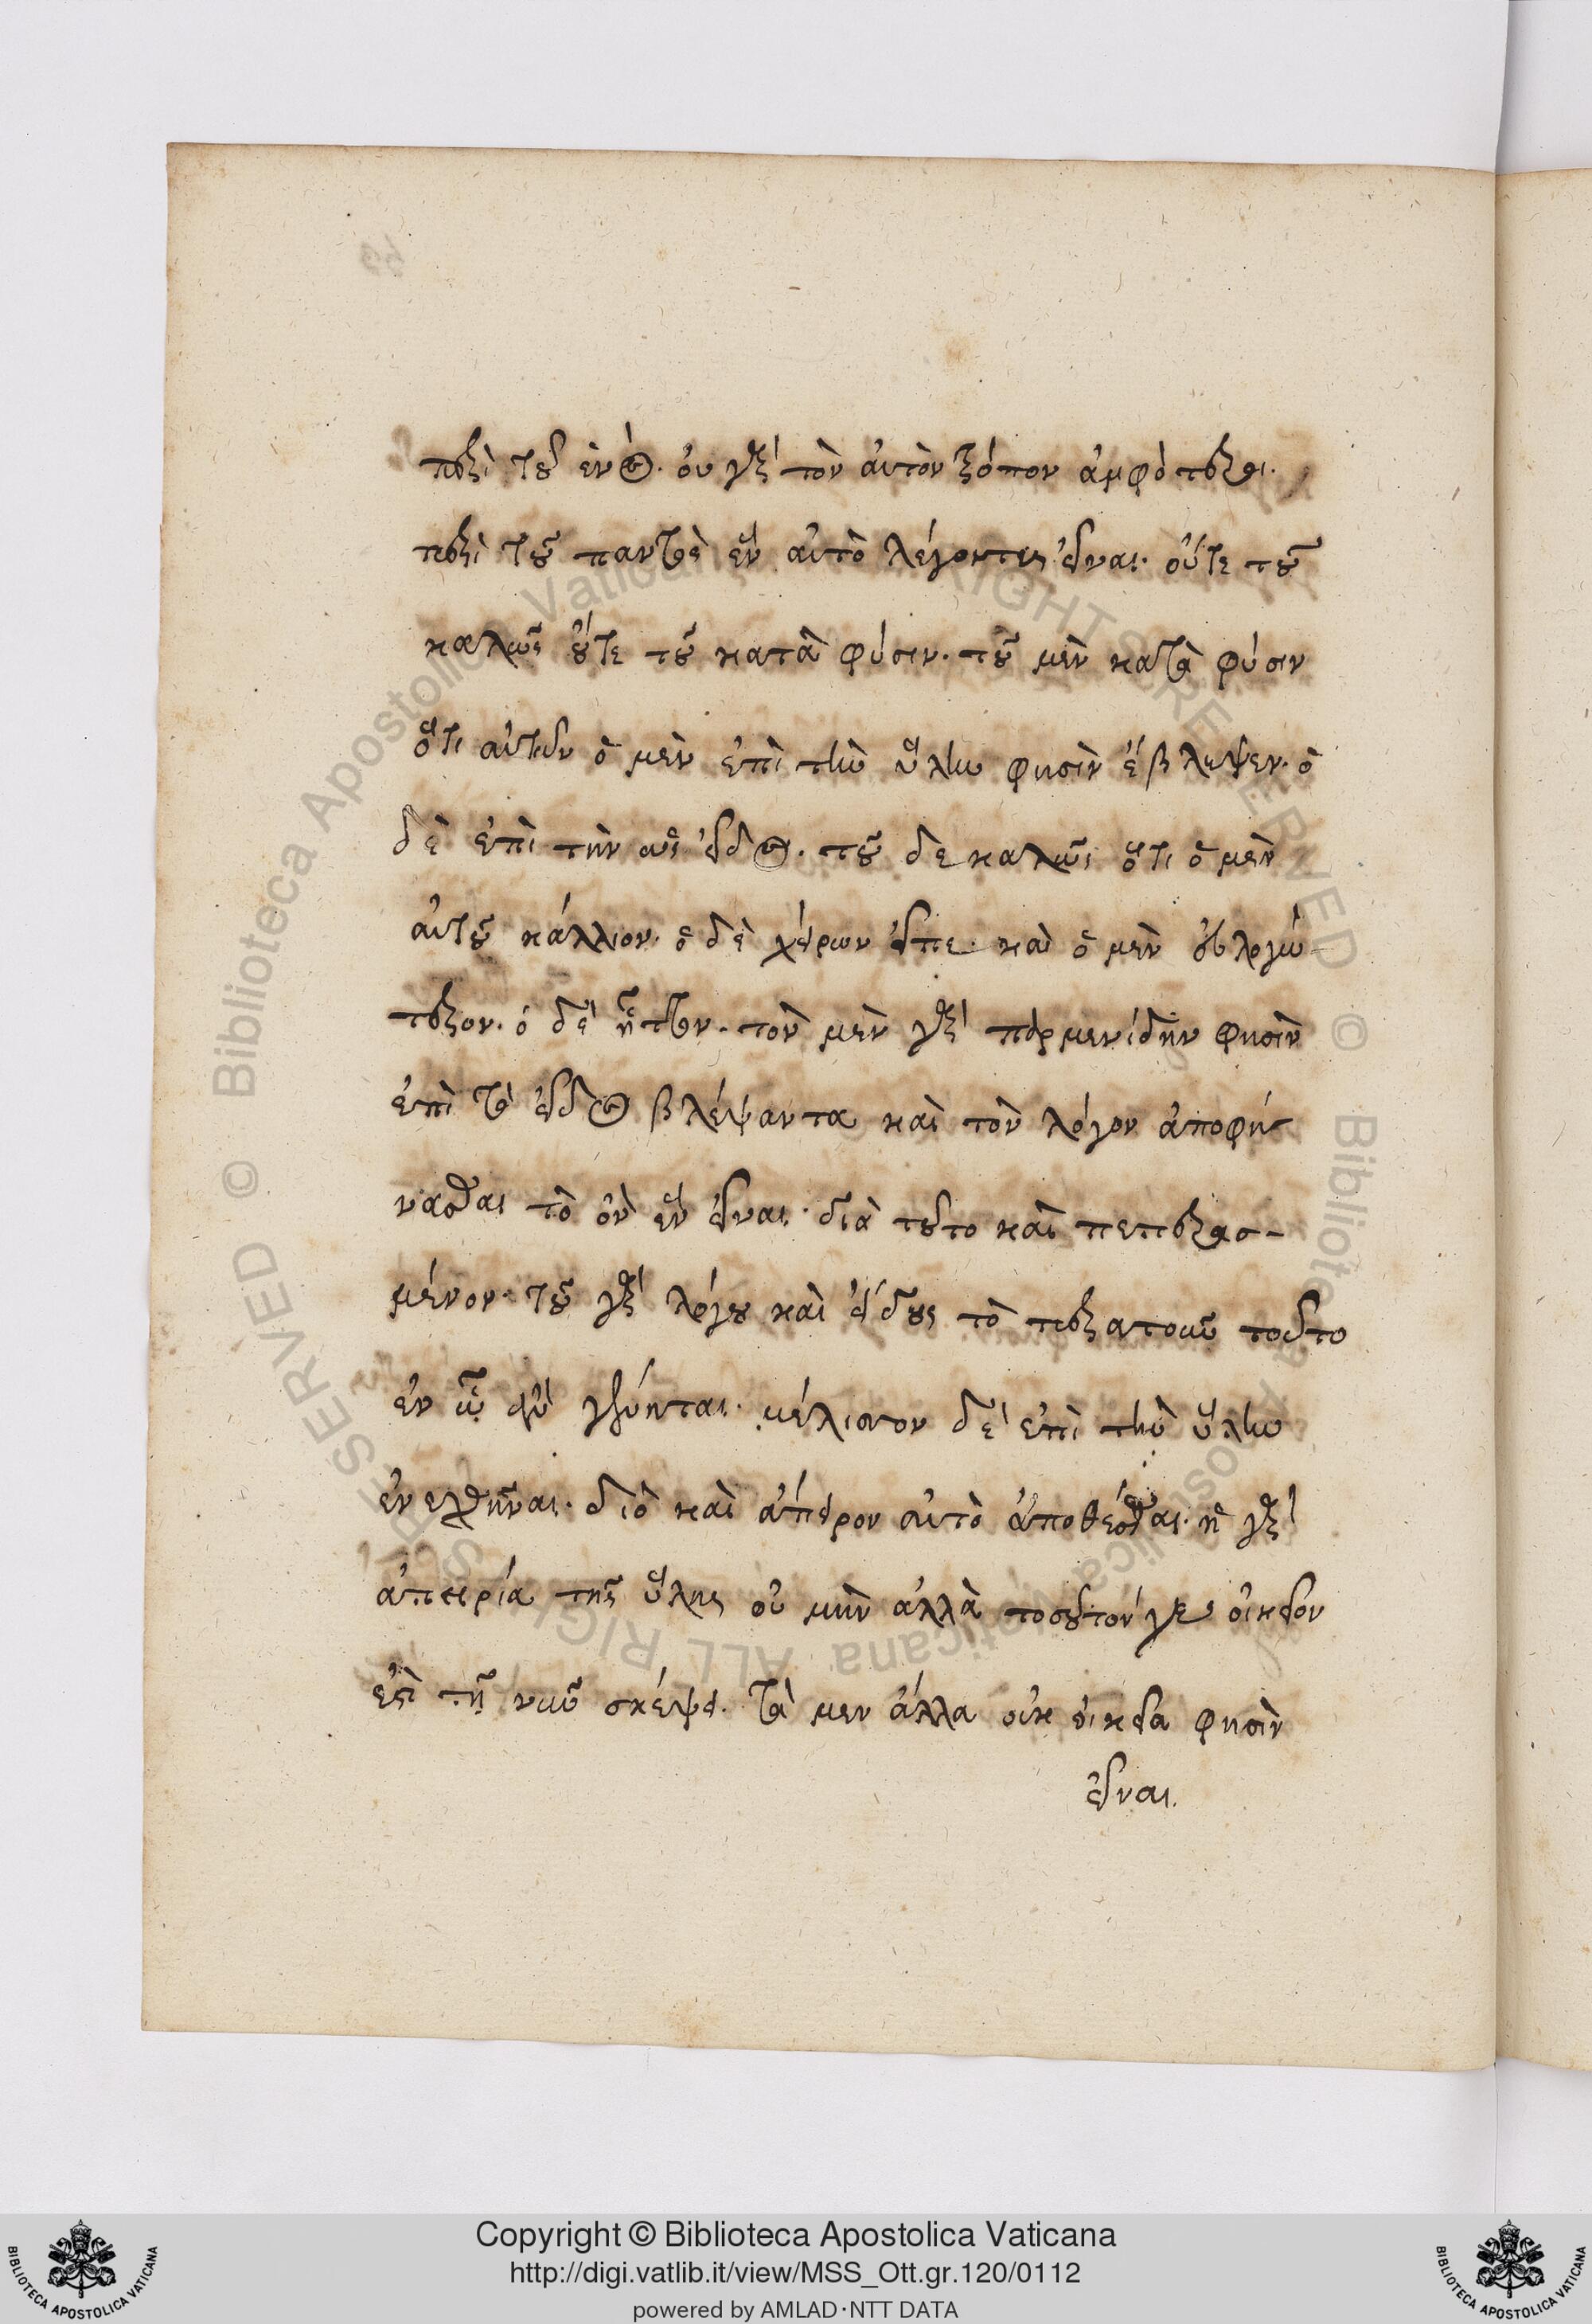 περὶ τοῦ ἑνός. οὐ γὰρ τὸν αὐτὸν τρόπον ἀμφότεροι.
περὶ τοῦ παντὸς ἓν αὐτὸ λέγοντες εἶναι. οὔτε τοῦ
καλῶς οὔτε τοῦ κατὰ φύσιν. τοῦ μὲν κατὰ φύσιν
ὅτι αὐτῶν ὁ μὲν ἐπὶ τὴν ὕλην φησὶν ἔβλεψεν. ὁ
δὲ ἐπὶ τὴν ὡς εἶδος. τοῦ δὲ καλῶς ὅτι ὁ μὲν
αὐτοῦ κάλλιον. ὁ δὲ χείρων εἶπε. καὶ ὁ μὲν εὐλογώ-
τερον. ὁ δὲ ἧττον. τὸν μὲν γὰρ παρμενίδην φησὶν
ἐπὶ τὸ εἶδος βλέψαντα καὶ τὸν λόγον ἀποφή-
νασθαι τὸ ὂν ἓν εἶναι. διὰ τοῦτο καὶ πεπερασ-
μένον. τοῦ γὰρ λόγου καὶ εἴδους τὸ περατοῦν τοῦτο
ἐν ᾧ ἂν γένηται. μέλισσον δὲ ἐπὶ τὴν ὕλην
ἐνεχθῆναι. διὸ καὶ ἄπειρον αὐτὸ ἀποθέσθαι. ἡ γὰρ
ἀπειρία τῆς ὕλης οὐ μὴν ἀλλὰ τοσοῦτόν γε οἰκεῖον
ἐπὶ τῇ νῦν σκέψει. τὰ μὲν ἄλλα οὐκ οἰκεῖα φησὶν
εἶναι.
Copyright © Biblioteca Apostolica Vaticana
http://digi.vatlib.it/view/MSS_Ott.gr.120/0112
powered by AMLAD·NTT DATA